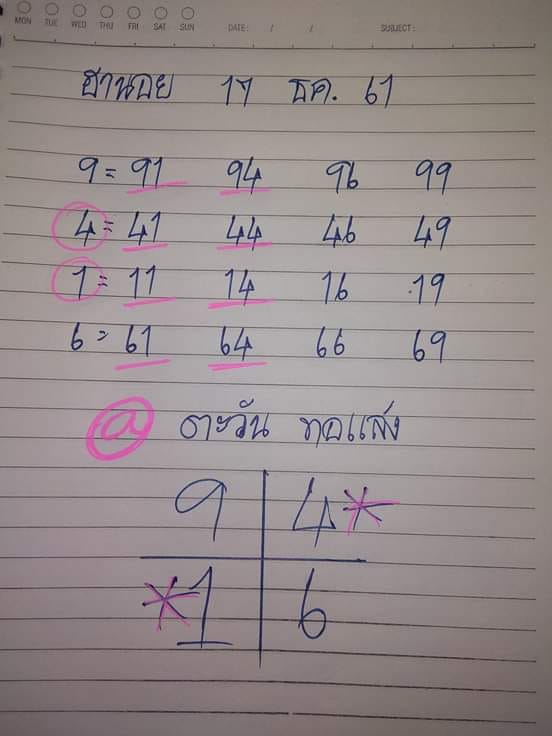 MON TUE WED THU FRI SAT SUN DATE: / / SUBJECT:
ฮานอย 17 ธค. 61
9 = 91 94 96 99
4 = 41 44 46 49
1 = 11 14 16 19
6 = 61 64 66 69
@ ตะวัน ทอแสง
9 4*
*1 6